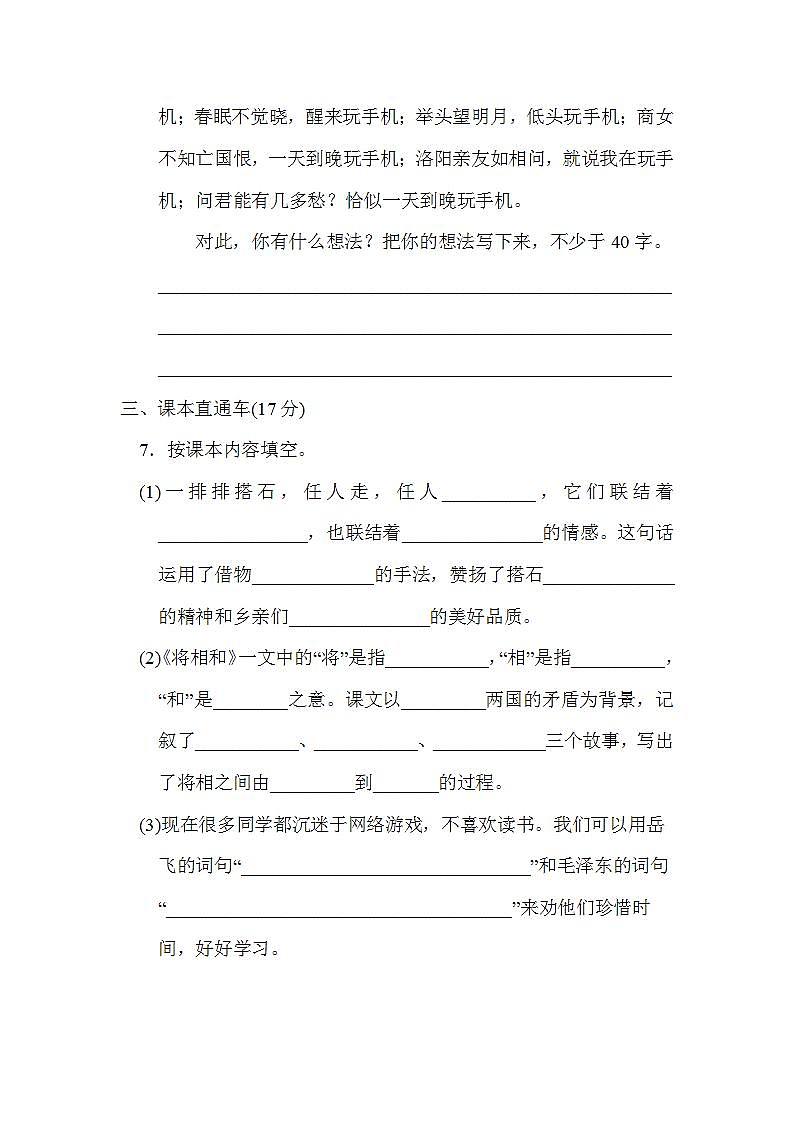 机；春眠不觉晓，醒来玩手机；举头望明月，低头玩手机；商女
不知亡国恨，一天到晚玩手机；洛阳亲友如相问，就说我在玩手
机；问君能有几多愁？恰似一天到晚玩手机。
对此，你有什么想法？把你的想法写下来，不少于 40 字。
______________________________________________________
______________________________________________________
______________________________________________________
三、课本直通车(17 分)
7．按课本内容填空。
(1)一排排搭石，任人走，任人__________，它们联结着
________________，也联结着_______________的情感。这句话
运用了借物_____________的手法，赞扬了搭石______________
的精神和乡亲们_______________的美好品质。
(2)《将相和》一文中的“将”是指___________，“相”是指__________，
“和”是________之意。课文以_________两国的矛盾为背景，记
叙了___________、___________、____________三个故事，写出
了将相之间由_________到_______的过程。
(3)现在很多同学都沉迷于网络游戏，不喜欢读书。我们可以用岳
飞的词句“_______________________________”和毛泽东的词句
“_____________________________________”来劝他们珍惜时
间，好好学习。